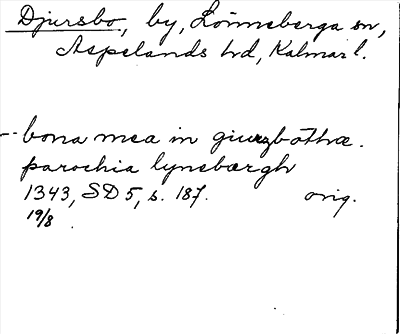 Djursbo, by, Lönneberga sn,
Aspelands hd, Kalmar l.
-- bona mea in giurzbothæ.
parochia lynebærgh
1343, SD 5, s. 187. orig.
19/8.